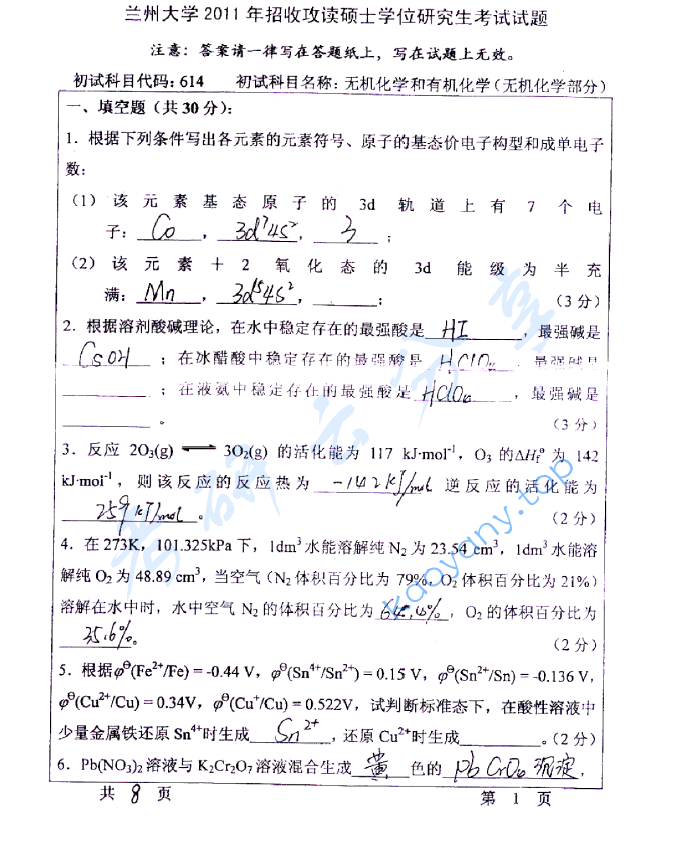 兰州大学2011年招收攻读硕士学位研究生考试试题
注意：答案请一律写在答题纸上，写在试题上无效。
初试科目代码：614 初试科目名称：无机化学和有机化学（无机化学部分）
一、填空题（共30分）：
1．根据下列条件写出各元素的元素符号、原子的基态价电子构型和成单电子
数：
（1）该元素基态原子的3d轨道上有7个电
子：Co，3d⁷4s²，3；
（2）该元素＋2氧化态的3d能级为半充
满：Mn，3d⁵4s²，；（3分）
2．根据溶剂酸碱理论，在水中稳定存在的最强酸是 HI ，最强碱是
CsOH ；在冰醋酸中稳定存在的最强酸是 HClO₄ ，最强碱是
；在液氨中稳定存在的最强酸是 HClO₄ ，最强碱是
。（3分）
3．反应 2O₃(g) ⇌ 3O₂(g) 的活化能为 117 kJ·mol⁻¹，O₃ 的ΔHf° 为 142
kJ·mol⁻¹，则该反应的反应热为 -142kJ/mol 逆反应的活化能为
259kJ/mol 。（2分）
4．在273K，101.325kPa下，1dm³水能溶解纯N₂为23.54 cm³，1dm³水能溶
解纯O₂为48.89 cm³，当空气（N₂体积百分比为79%，O₂体积百分比为21%）
溶解在水中时，水中空气 N₂的体积百分比为 64.4% ，O₂的体积百分比为
35.6%。（2分）
5．根据φᶿ(Fe²⁺/Fe) = -0.44 V，φᶿ(Sn⁴⁺/Sn²⁺) = 0.15 V，φᶿ(Sn²⁺/Sn) = -0.136 V，
φᶿ(Cu²⁺/Cu) = 0.34V，φᶿ(Cu⁺/Cu) = 0.522V，试判断标准态下，在酸性溶液中
少量金属铁还原 Sn⁴⁺时生成 Sn²⁺ ，还原 Cu²⁺时生成 。（2分）
6．Pb(NO₃)₂溶液与K₂Cr₂O₇溶液混合生成 黄 色的 PbCrO₄沉淀，
共 8 页 第 1 页
考研云分享
kaoyany.top